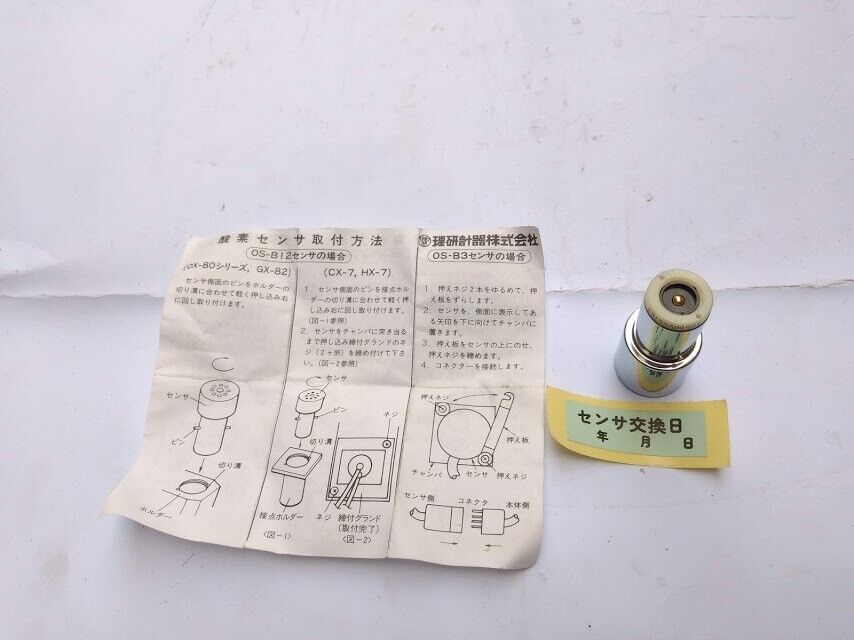 酸素センサ取付方法
OS-B12センサの場合
(OX-80シリーズ, GX-82)
センサ側面のピンをホルダーの
切り溝に合わせて軽く押し込み右
に回し取り付けます。
センサ
ピン
切り溝
ホルダー
(CX-7, HX-7)
1. センサ側面のピンを接点ホル
ダーの切り溝に合わせて軽く押
し込み右に回し取り付けます。
(図-1参照)
2. センサをチャンバに突き当る
まで押し込み締付グランドのネ
ジ(2ヶ所)を締め付けて下さ
い。(図-2参照)
センサ
ピン
ネジ
切り溝
接点ホルダー
ネジ
締付グランド
(取付完了)
〈図-1〉
〈図-2〉
理研計器株式会社
OS-B3センサの場合
1. 押えネジ2本をゆるめて、押
え板をずらします。
2. センサを、側面に表示してあ
る矢印を下に向けてチャンバに
置きます。
3. 押え板をセンサの上にのせ、
押えネジを締めます。
4. コネクターを接続します。
押えネジ
押え板
チャンバ
センサ
押えネジ
センサ側
コネクタ
本体側
センサ交換日
年 月 日